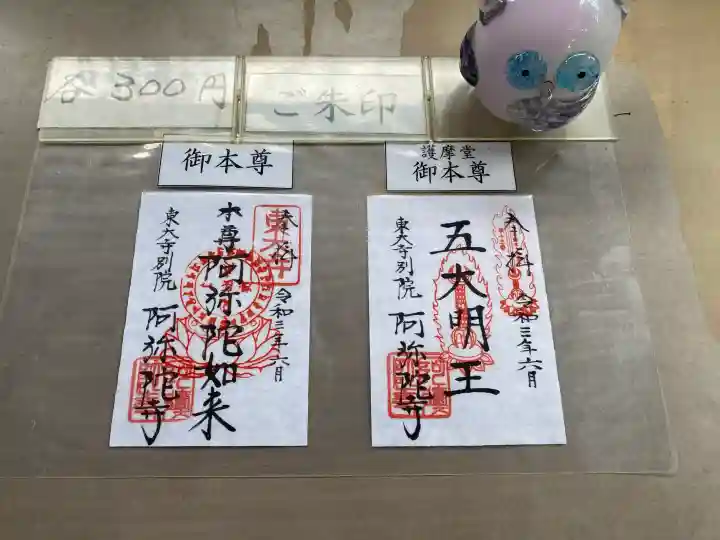 各300円
ご朱印
御本尊
護摩堂
御本尊
奉拝 令和三年六月
本尊阿弥陀如来
東大寺別院 阿弥陀寺
奉拝 令和三年六月
五大明王
東大寺別院 阿弥陀寺